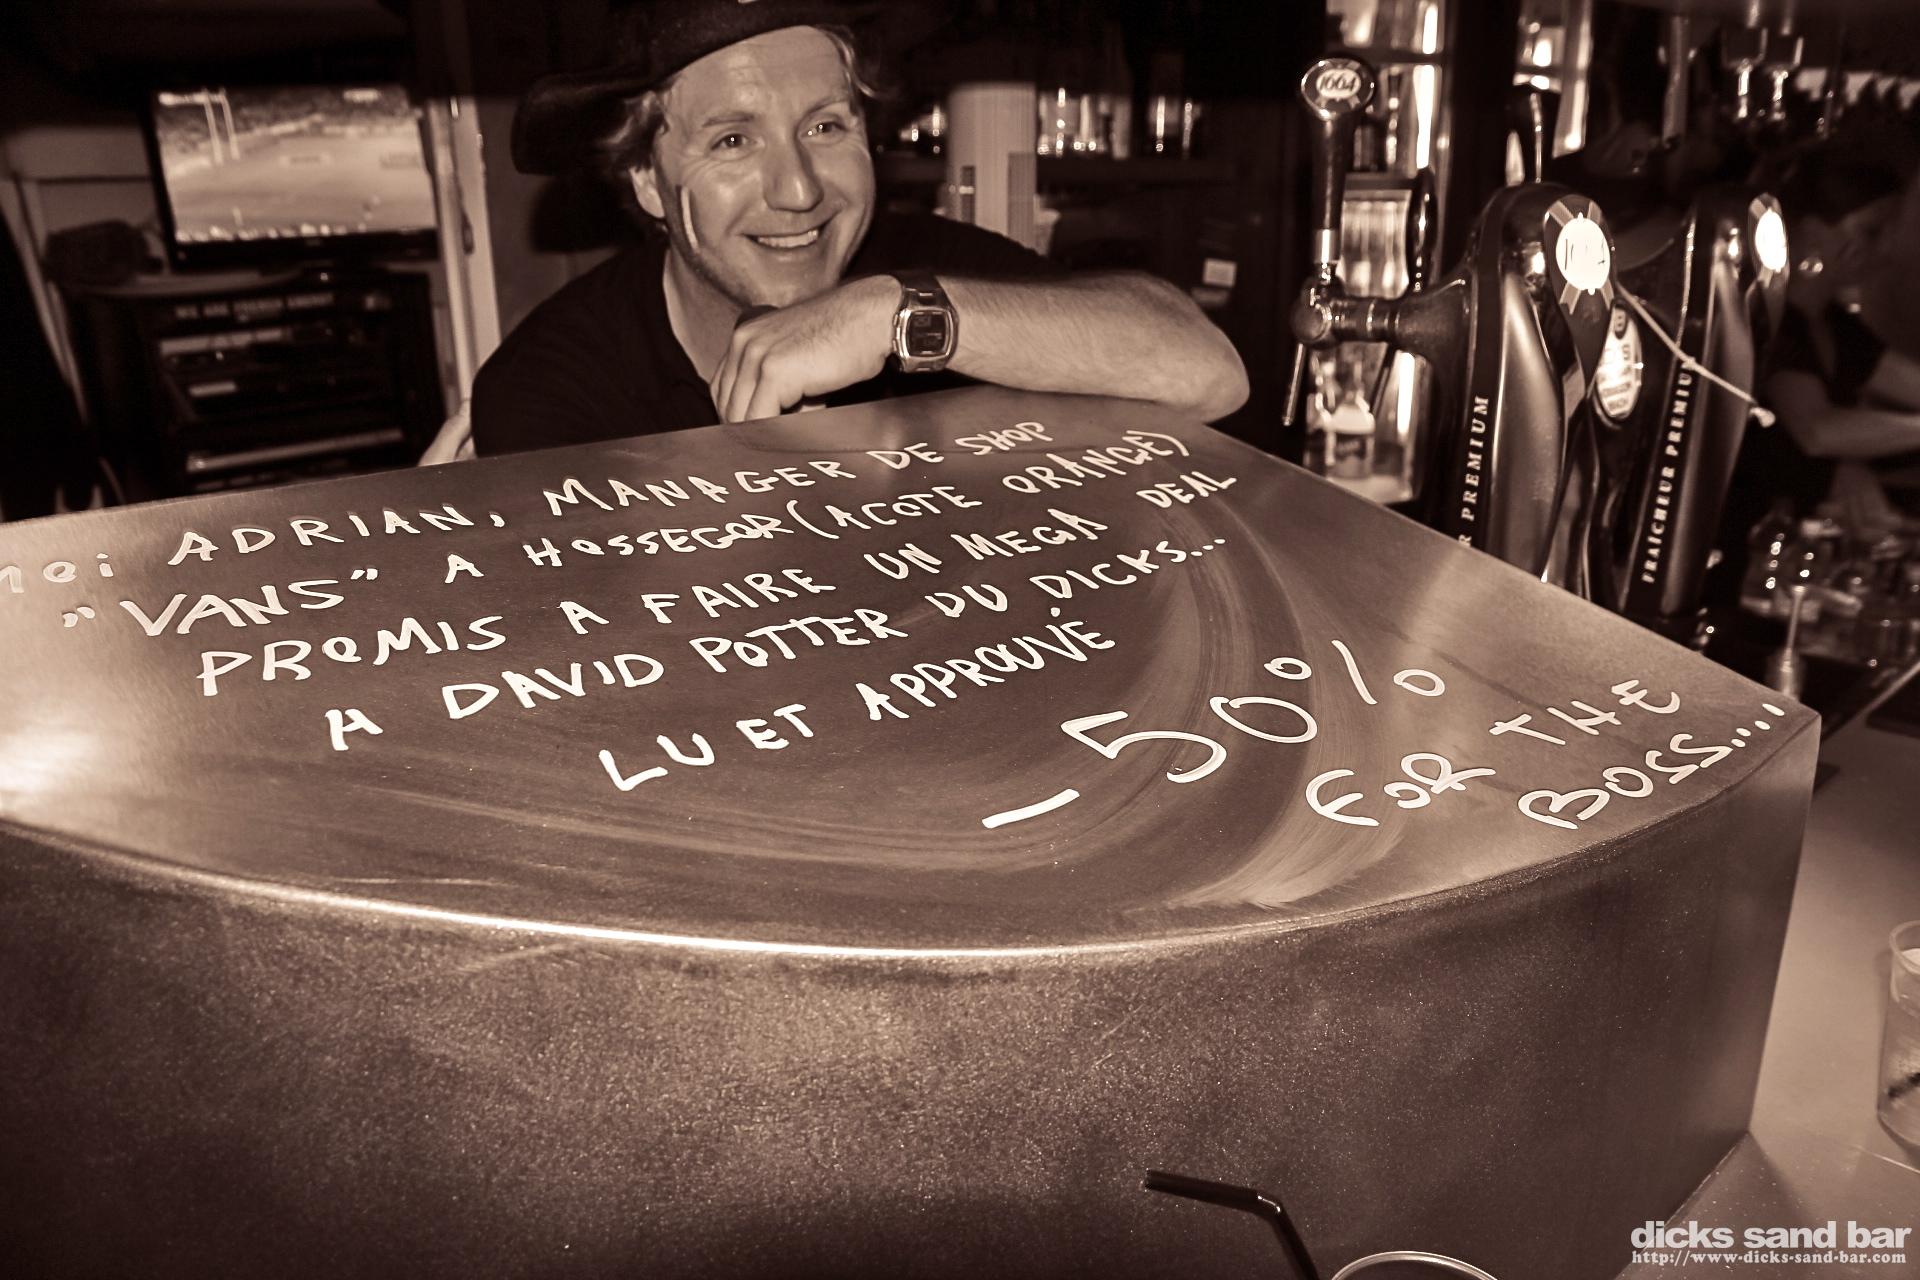 moi ADRIAN, MANAGER DE SHOP
"VANS" A HOSSEGOR (A COTE ORANGE)
PROMIS A FAIRE UN MEGA DEAL
A DAVID POTTER DU DICKS...
LU ET APPROUVÉ
- 50%
FOR THE
BOSS....
1664
1664
PREMIUM
FRAÎCHEUR PREMIUM
dicks sand bar
http://www.dicks-sand-bar.com